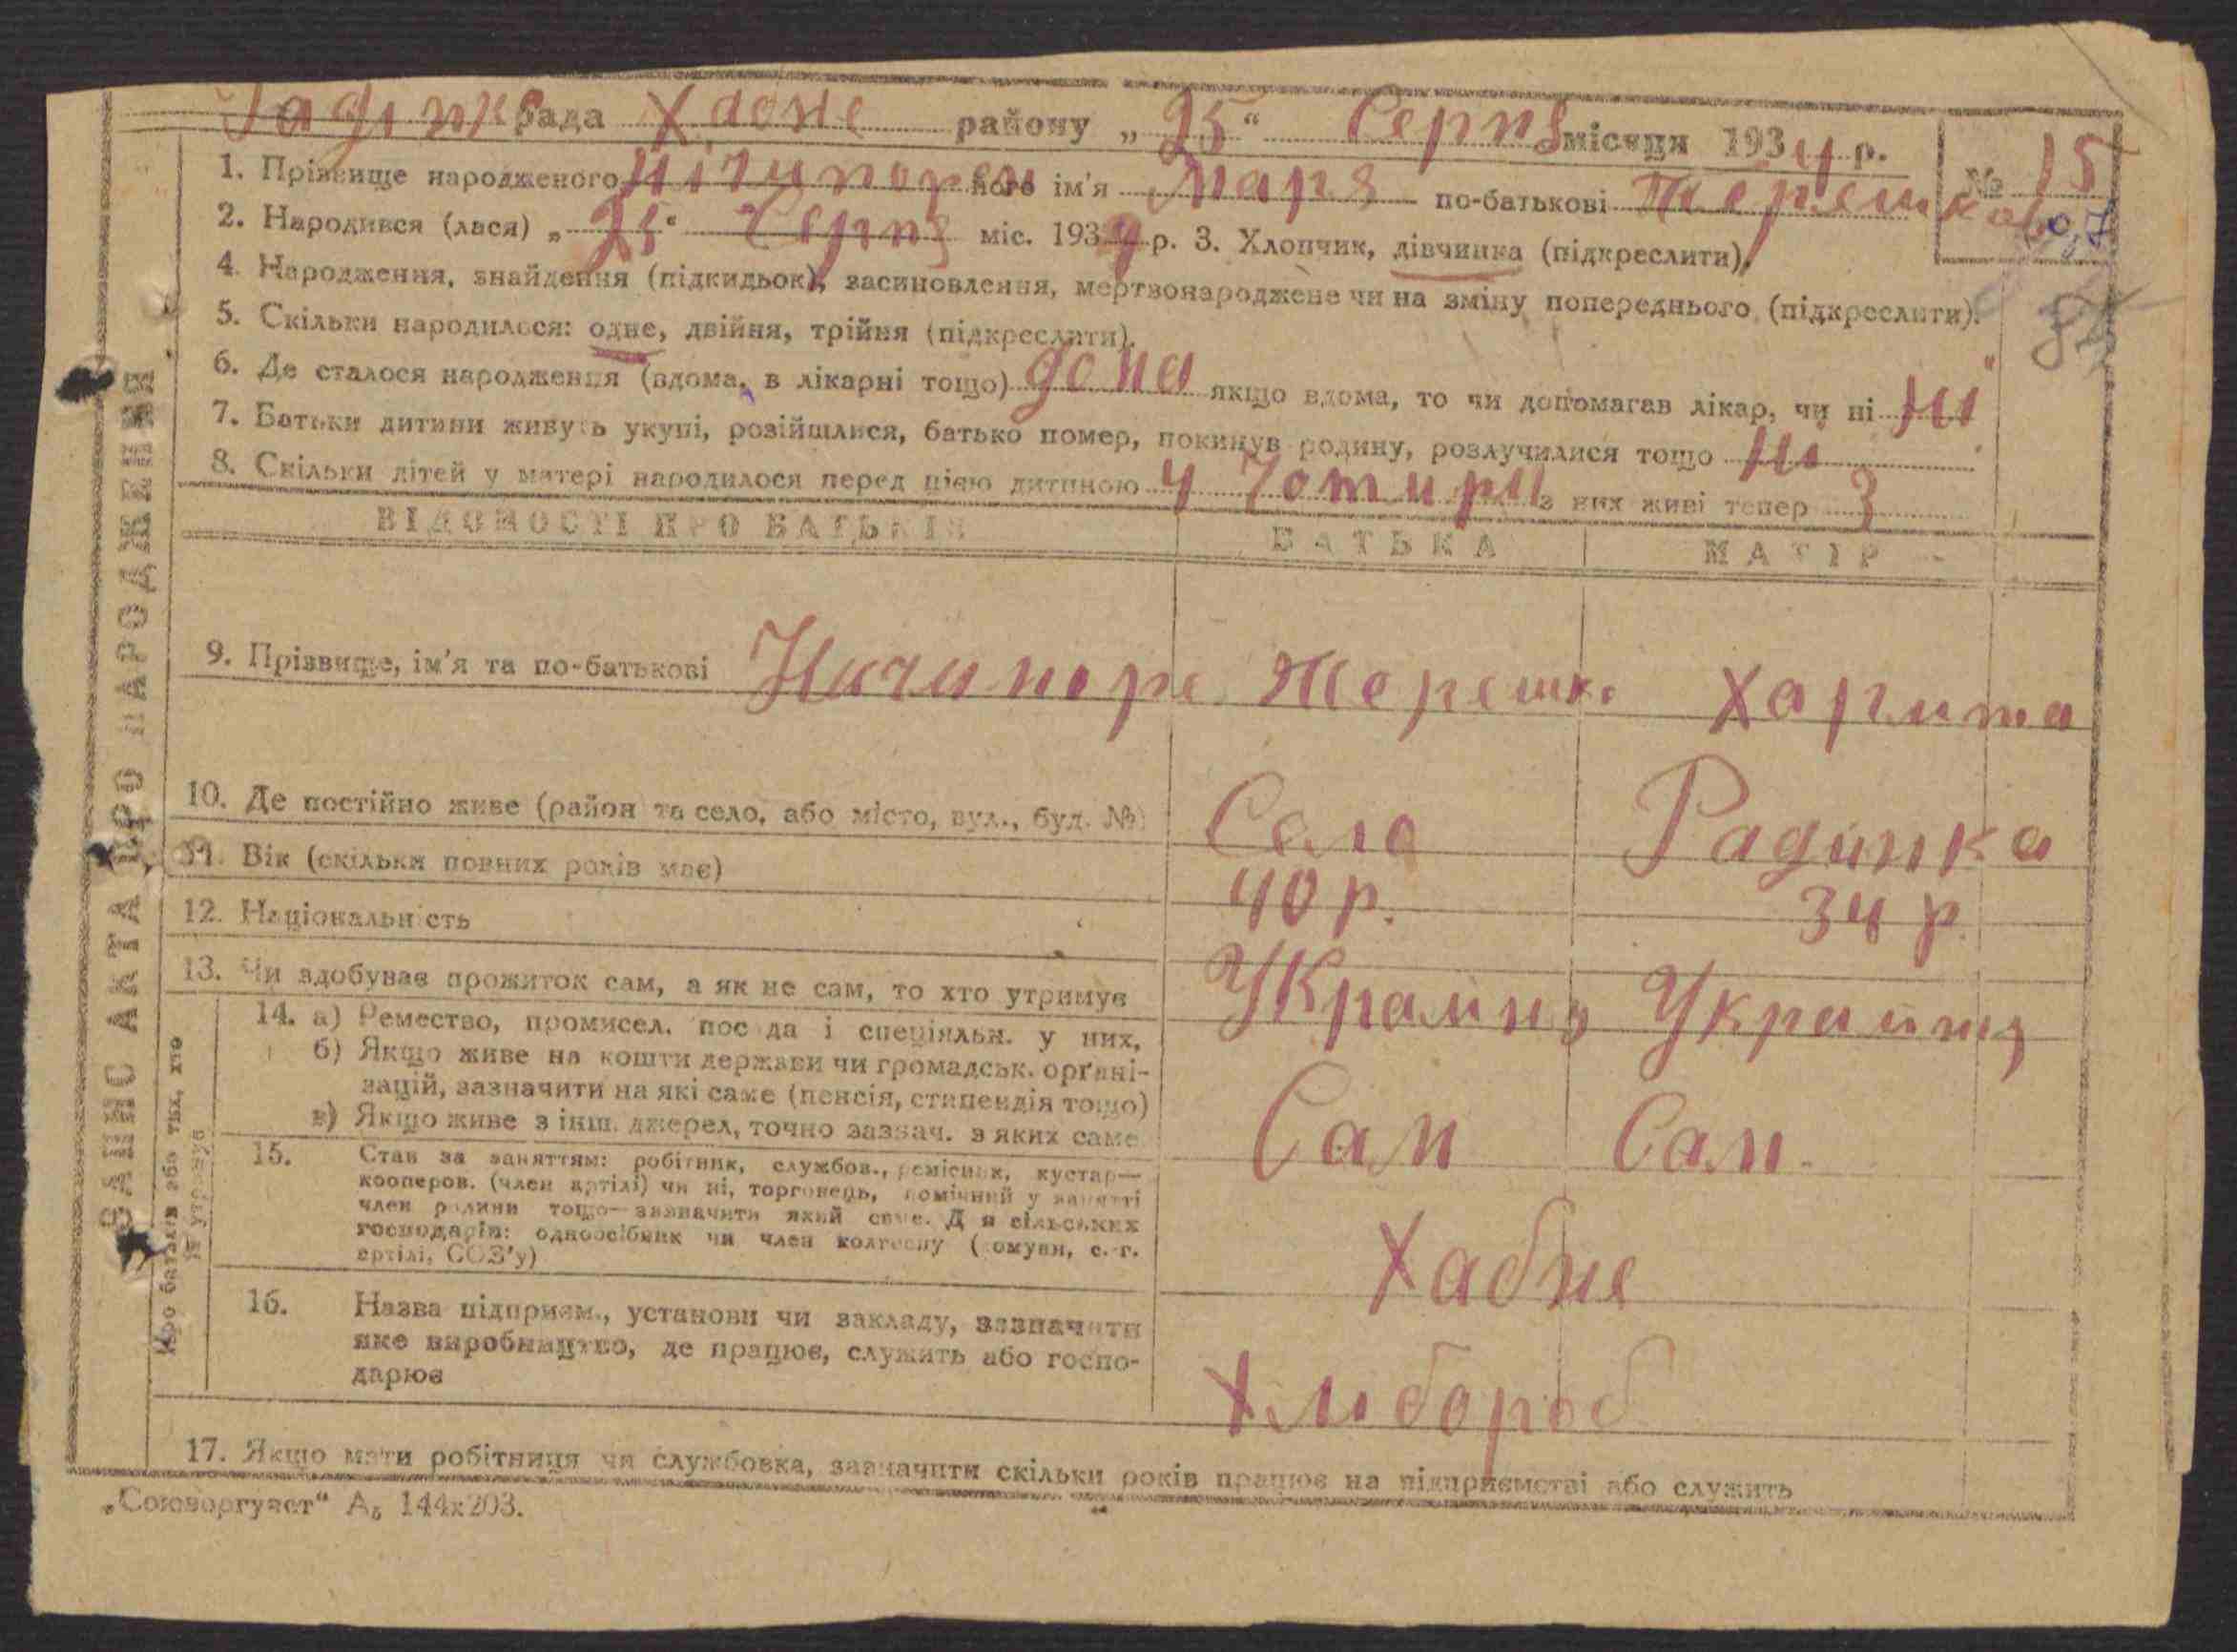 Радинк рада Хабне району „25“ Серпя місяця 1934 р. № 15
1. Прізвище народженого Нічипорен його ім'я Маря по-батькові Терешкова
2. Народився (лася) „25“ Серпя міс. 1934 р. 3. Хлопчик, дівчинка (підкреслити).
4. Народження, знайдення (підкидьок), засиновлення, мертвонароджене чи на зміну попереднього (підкреслити).
5. Скільки народилося: одне, двійня, трійня (підкреслити).
6. Де сталося народження (вдома, в лікарні тощо) дома якщо вдома, то чи допомагав лікар, чи ні ні
7. Батьки дитини живуть укупі, розійшлися, батько помер, покинув родину, розлучилися тощо ні
8. Скільки дітей у матері народилося перед цією дитиною 4 Чотири з них живі тепер 3
ВІДОМОСТІ ПРО БАТЬКІВ БАТЬКА МАТІР
9. Прізвище, ім'я та по-батькові Ничипоре Терешко Харита
10. Де постійно живе (район та село, або місто, вул., буд. №) Село Радинка
11. Вік (скільки повних років має) 40 р. 34 р.
12. Національність Украинз Украинз
13. Чи здобуває прожиток сам, а як не сам, то хто утримує Сам Сам
14. а) Ремество, промисел, посада і спеціяльн. у них,
б) Якщо живе на кошти держави чи громадськ. орґані-
зацій, зазначити на які саме (пенсія, стипендія тощо)
в) Якщо живе з інш. джерел, точно зазнач. з яких саме
15. Стан за заняттям: робітник, службов., ремісник, кустар—
кооперов. (член артілі) чи ні, торговець, помічний у занятті
член родини тощо—зазначити який саме. Для сільських
господарів: одноосібник чи член колгоспу (комуни, с.-г.
артілі, СОЗ'у) Хабне
16. Назва підприєм., установи чи закладу, зазначити
яке виробництво, де працює, служить або госпо-
дарює Хлибороб
17. Якщо мати робітниця чи службовка, зазначити скільки років працює на підприємстві або служить
„Союзоргучет“ А5 144х203.
ЗАПИС АКТА ПРО НАРОДЖЕННЯ
Про батьків або тих, хто
їх утримує